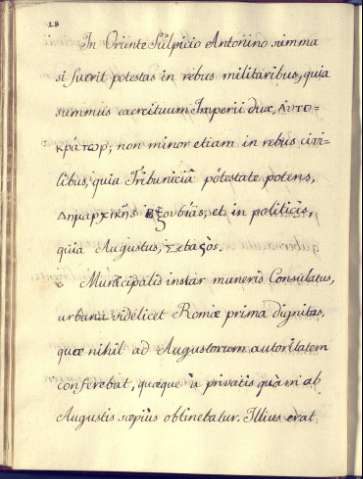 18
In Oriente Sulpicio Antonino summa
si fuerit potestas in rebus militaribus, quia
summus exercituum Imperii dux, Αυτο-
κράτωρ; non minor etiam in rebus civi-
libus, quia Tribuniciâ pôtestate potens,
Δημαρχικῆς ἐξουσίας, et in politicis,
quia Augustus, Σεβαϛός.
Municipalis instar muneris Consulatus,
urbana videlicet Romæ prima dignitas,
quæ nihil ad Augustorum autoritatem
conferebat, quæque à privatis quàm ab
Augustis sæpiùs obtinebatur. Illius erat